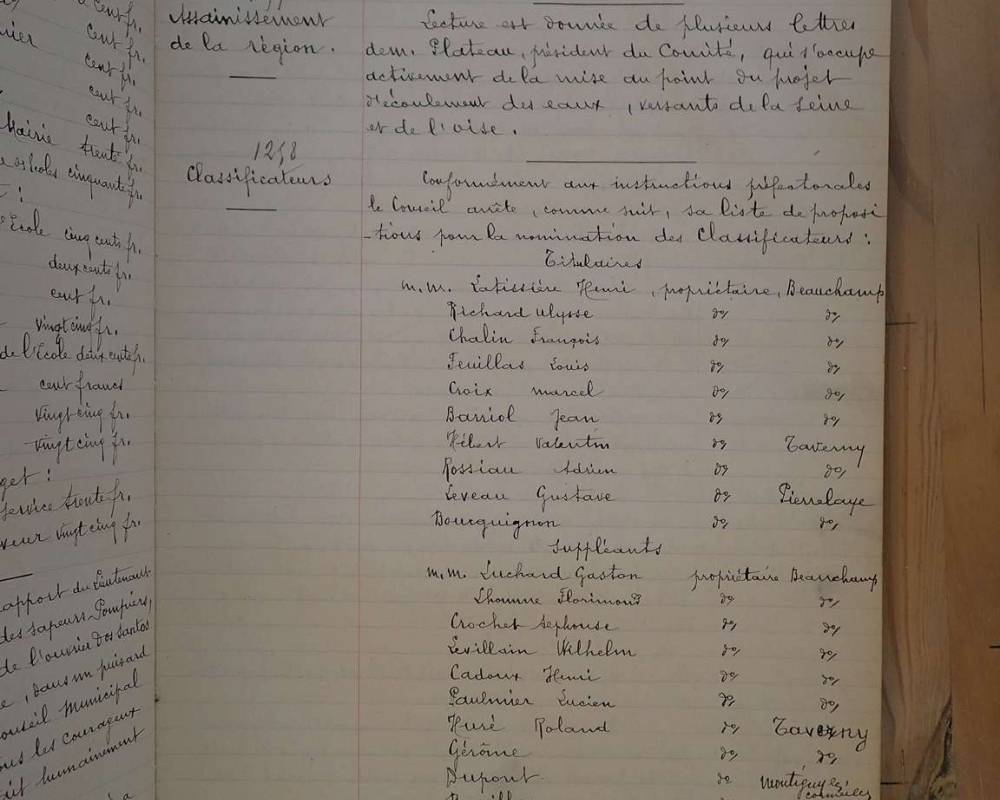 cent fr.
cent fr.
cent fr.
cent fr.
cent fr.
Mairie trente fr.
cinquante fr.
École cinq cents fr.
deux cents fr.
cent fr.
vingt cinq fr.
de l'École deux cents fr.
cent francs
vingt cinq fr.
vingt cinq fr.
get :
service trente fr.
veur vingt cinq fr.
rapport du Lieutenant
des sapeurs-Pompiers,
de l'ouvrier Dos Santos
e, dans un puisard
onseil Municipal
ous les courageux
humainement
Assainissement
de la région.
Lecture est donnée de plusieurs lettres
de m. Plateau, président du Comité, qui s'occupe
activement de la mise au point du projet
d'écoulement des eaux, versants de la Seine
et de l'oise.
1258
Classificateurs
Conformément aux instructions préfectorales
le Conseil arrête, comme suit, sa liste de proposi
-tions pour la nomination des Classificateurs :
Titulaires
m.m. Latissière Henri, propriétaire, Beauchamp
Richard Ulysse do do
Chalin François do do
Feuillas Louis do do
Croix marcel do do
Barriol Jean do do
Hébert Valentin do Taverny
Rossiau Adrien do do
Leveau Gustave do Pierrelaye
Bourguignon do do
Suppléants
m.m. Luchard Gaston propriétaire Beauchamp
Lhomme Florimond do do
Crochet do do
Levillain Wilhelm do do
Cadoux Henri do do
Paulmier Lucien do do
Huré Roland do Taverny
Gérôme do do
Dupont do Montigny les
cormeilles